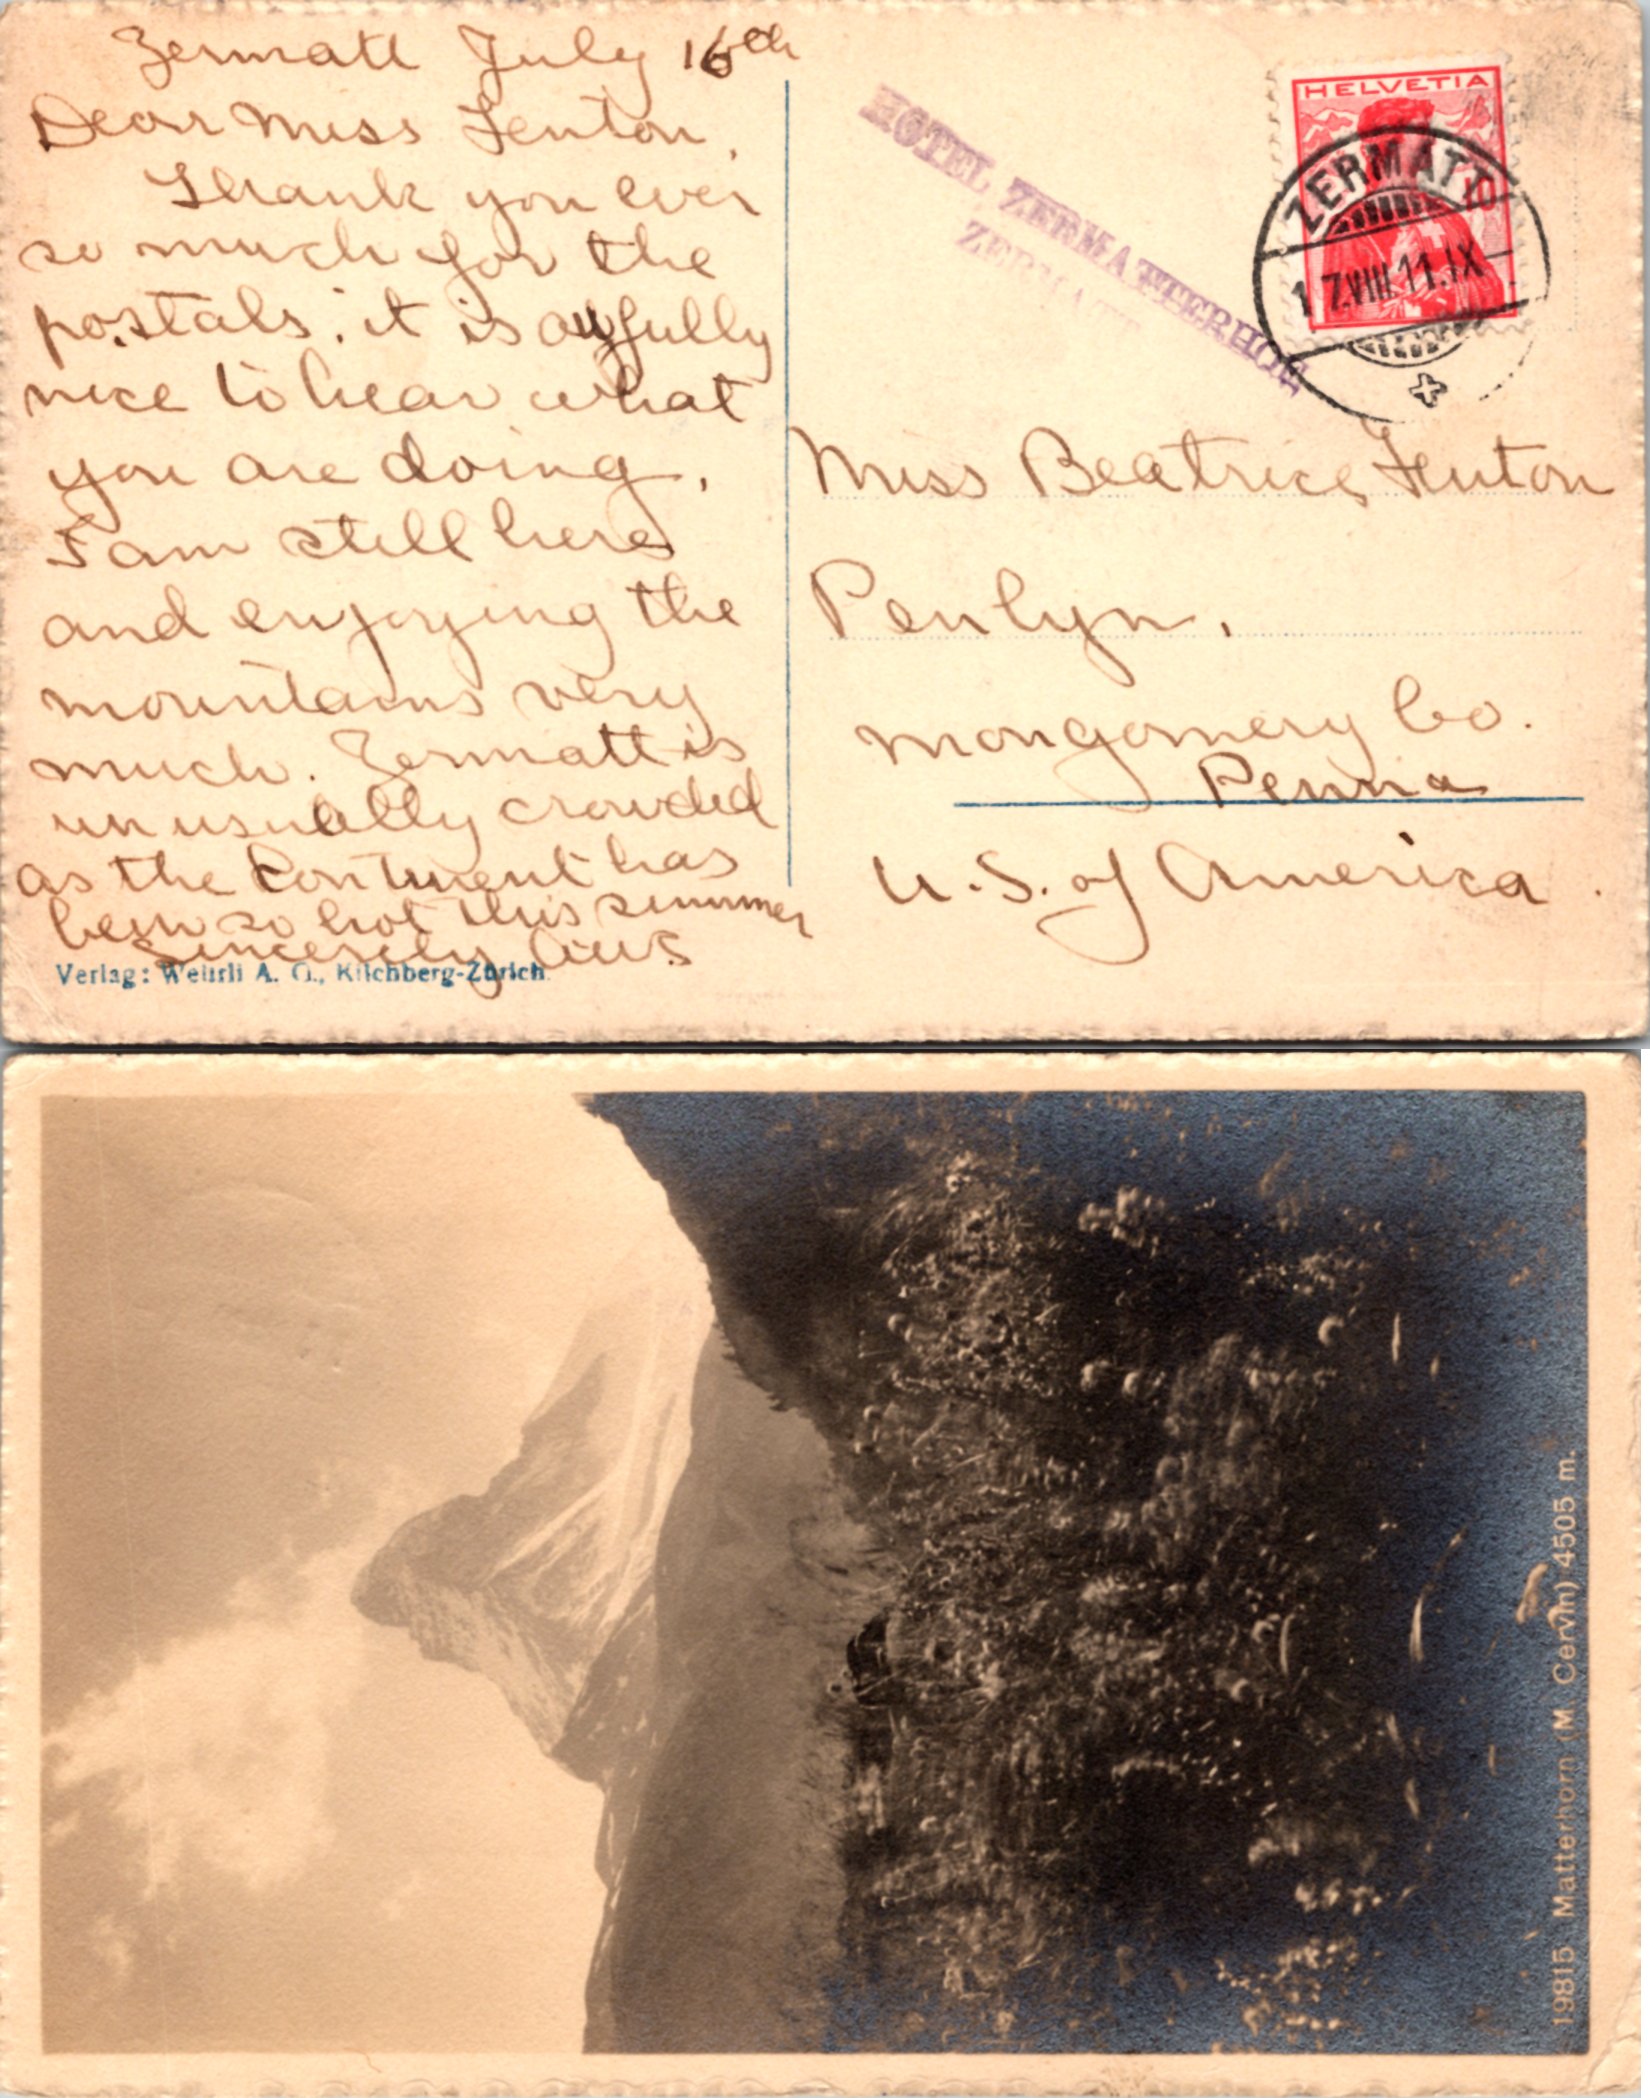 Zermatt July 16th
Dear Miss Fenton,
Thank you ever
so much for the
postals; it is awfully
nice to hear what
you are doing.
I am still here
and enjoying the
mountains very
much. Zermatt is
unusually crowded
as the Continent has
been so hot this summer
Sincerely
Verlag: Wehrli A. G., Kilchberg-Zürich.
HOTEL ZERMATTERHOF
ZERMATT
HELVETIA
10
ZERMATT
17.VIII.11.IX
Miss Beatrice Fenton
Penlyn,
Montgomery Co.
Penna
U.S. of America.
19815 Matterhorn (M. Cervin) 4505 m.